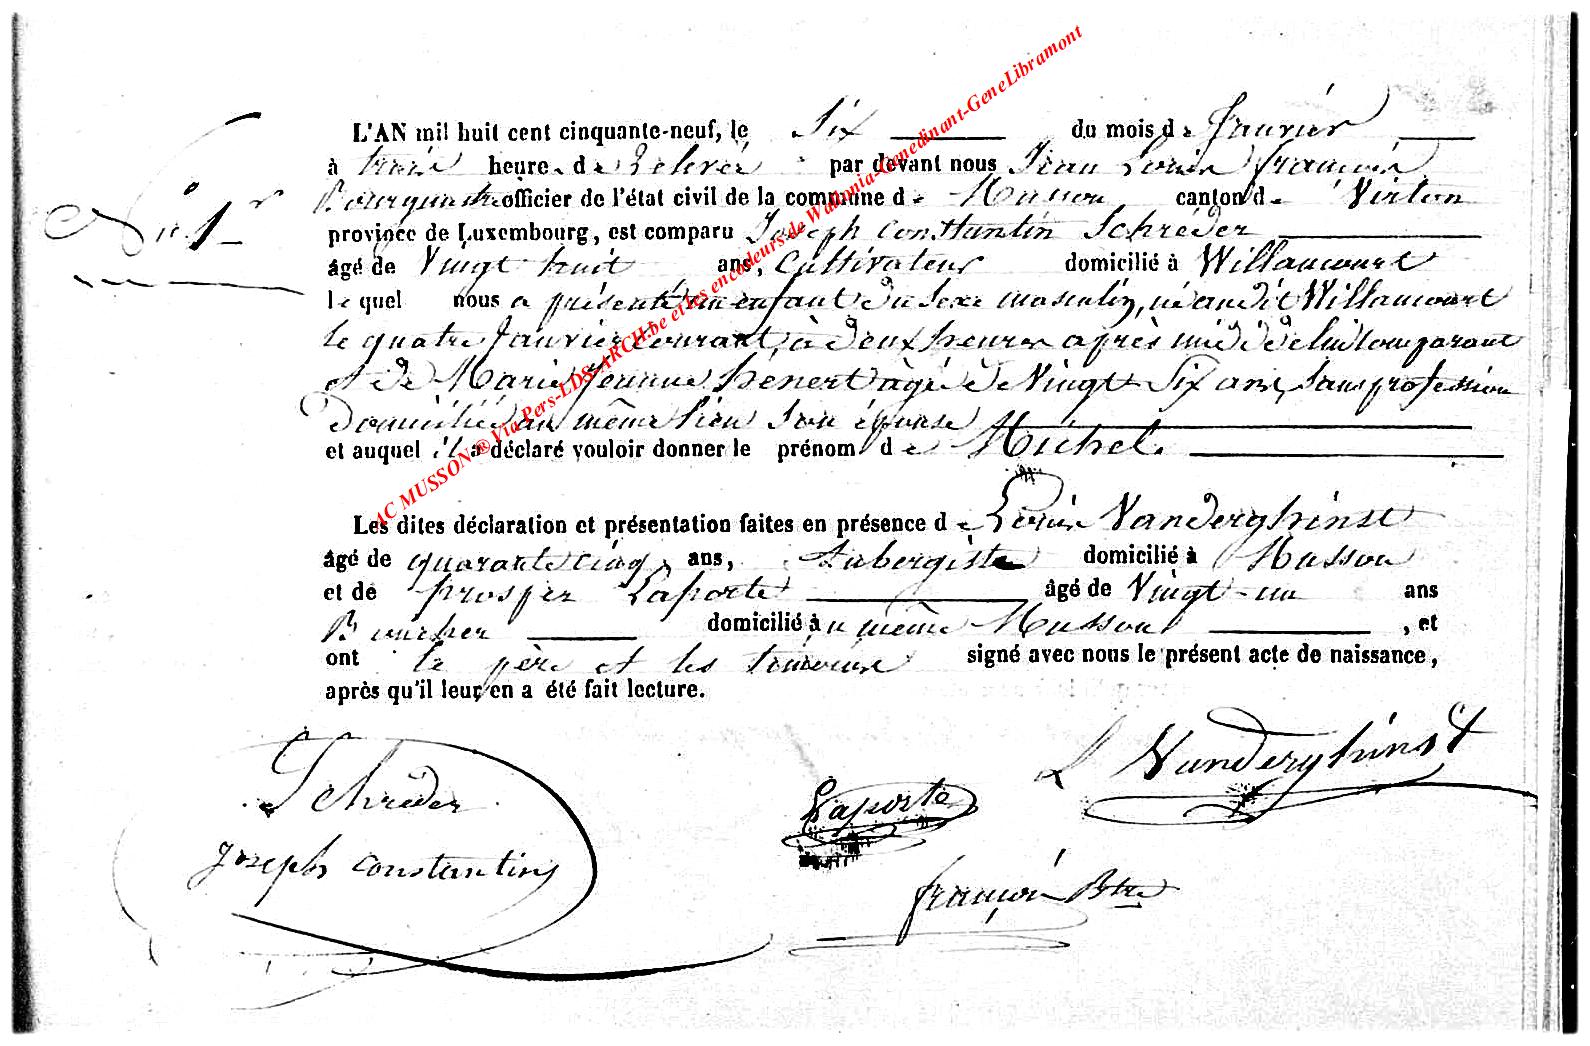 AC MUSSON ® Via Pers-LDS-ARCH.be et les encodeurs de Wallonia-Genedinant-GeneLibramont
N° 1r
L'AN mil huit cent cinquante-neuf, le Six du mois de Janvier
à trois heure de Relevée par devant nous Jean Louis françois
Bourgmestre officier de l'état civil de la commune de Musson canton de Virton
province de Luxembourg, est comparu Joseph Constantin Schréder
âgé de Vingt huit ans, Cultivateur domicilié à Willancourt
le quel nous a présenté un enfant du sexe masculin, né audit Willancourt
le quatre Janvier courant, à deux heures après midi de lui Comparant
et de Marie Jeanne hénert âgé de Vingt Six ans, Sans profession
Domiciliée au même lieu Son épouse
et auquel il a déclaré vouloir donner le prénom de Michel.
Les dites déclaration et présentation faites en présence de Louis Vanderghinst
âgé de quarante cinq ans, Aubergiste domicilié à Musson
et de prosper Laporte âgé de Vingt-un ans
Boucher domicilié au même Musson, et
ont le père et les témoins signé avec nous le présent acte de naissance,
après qu'il leur en a été fait lecture.
Schréder
Joseph constantin
Laporte
L Vanderghinst
françois Btre